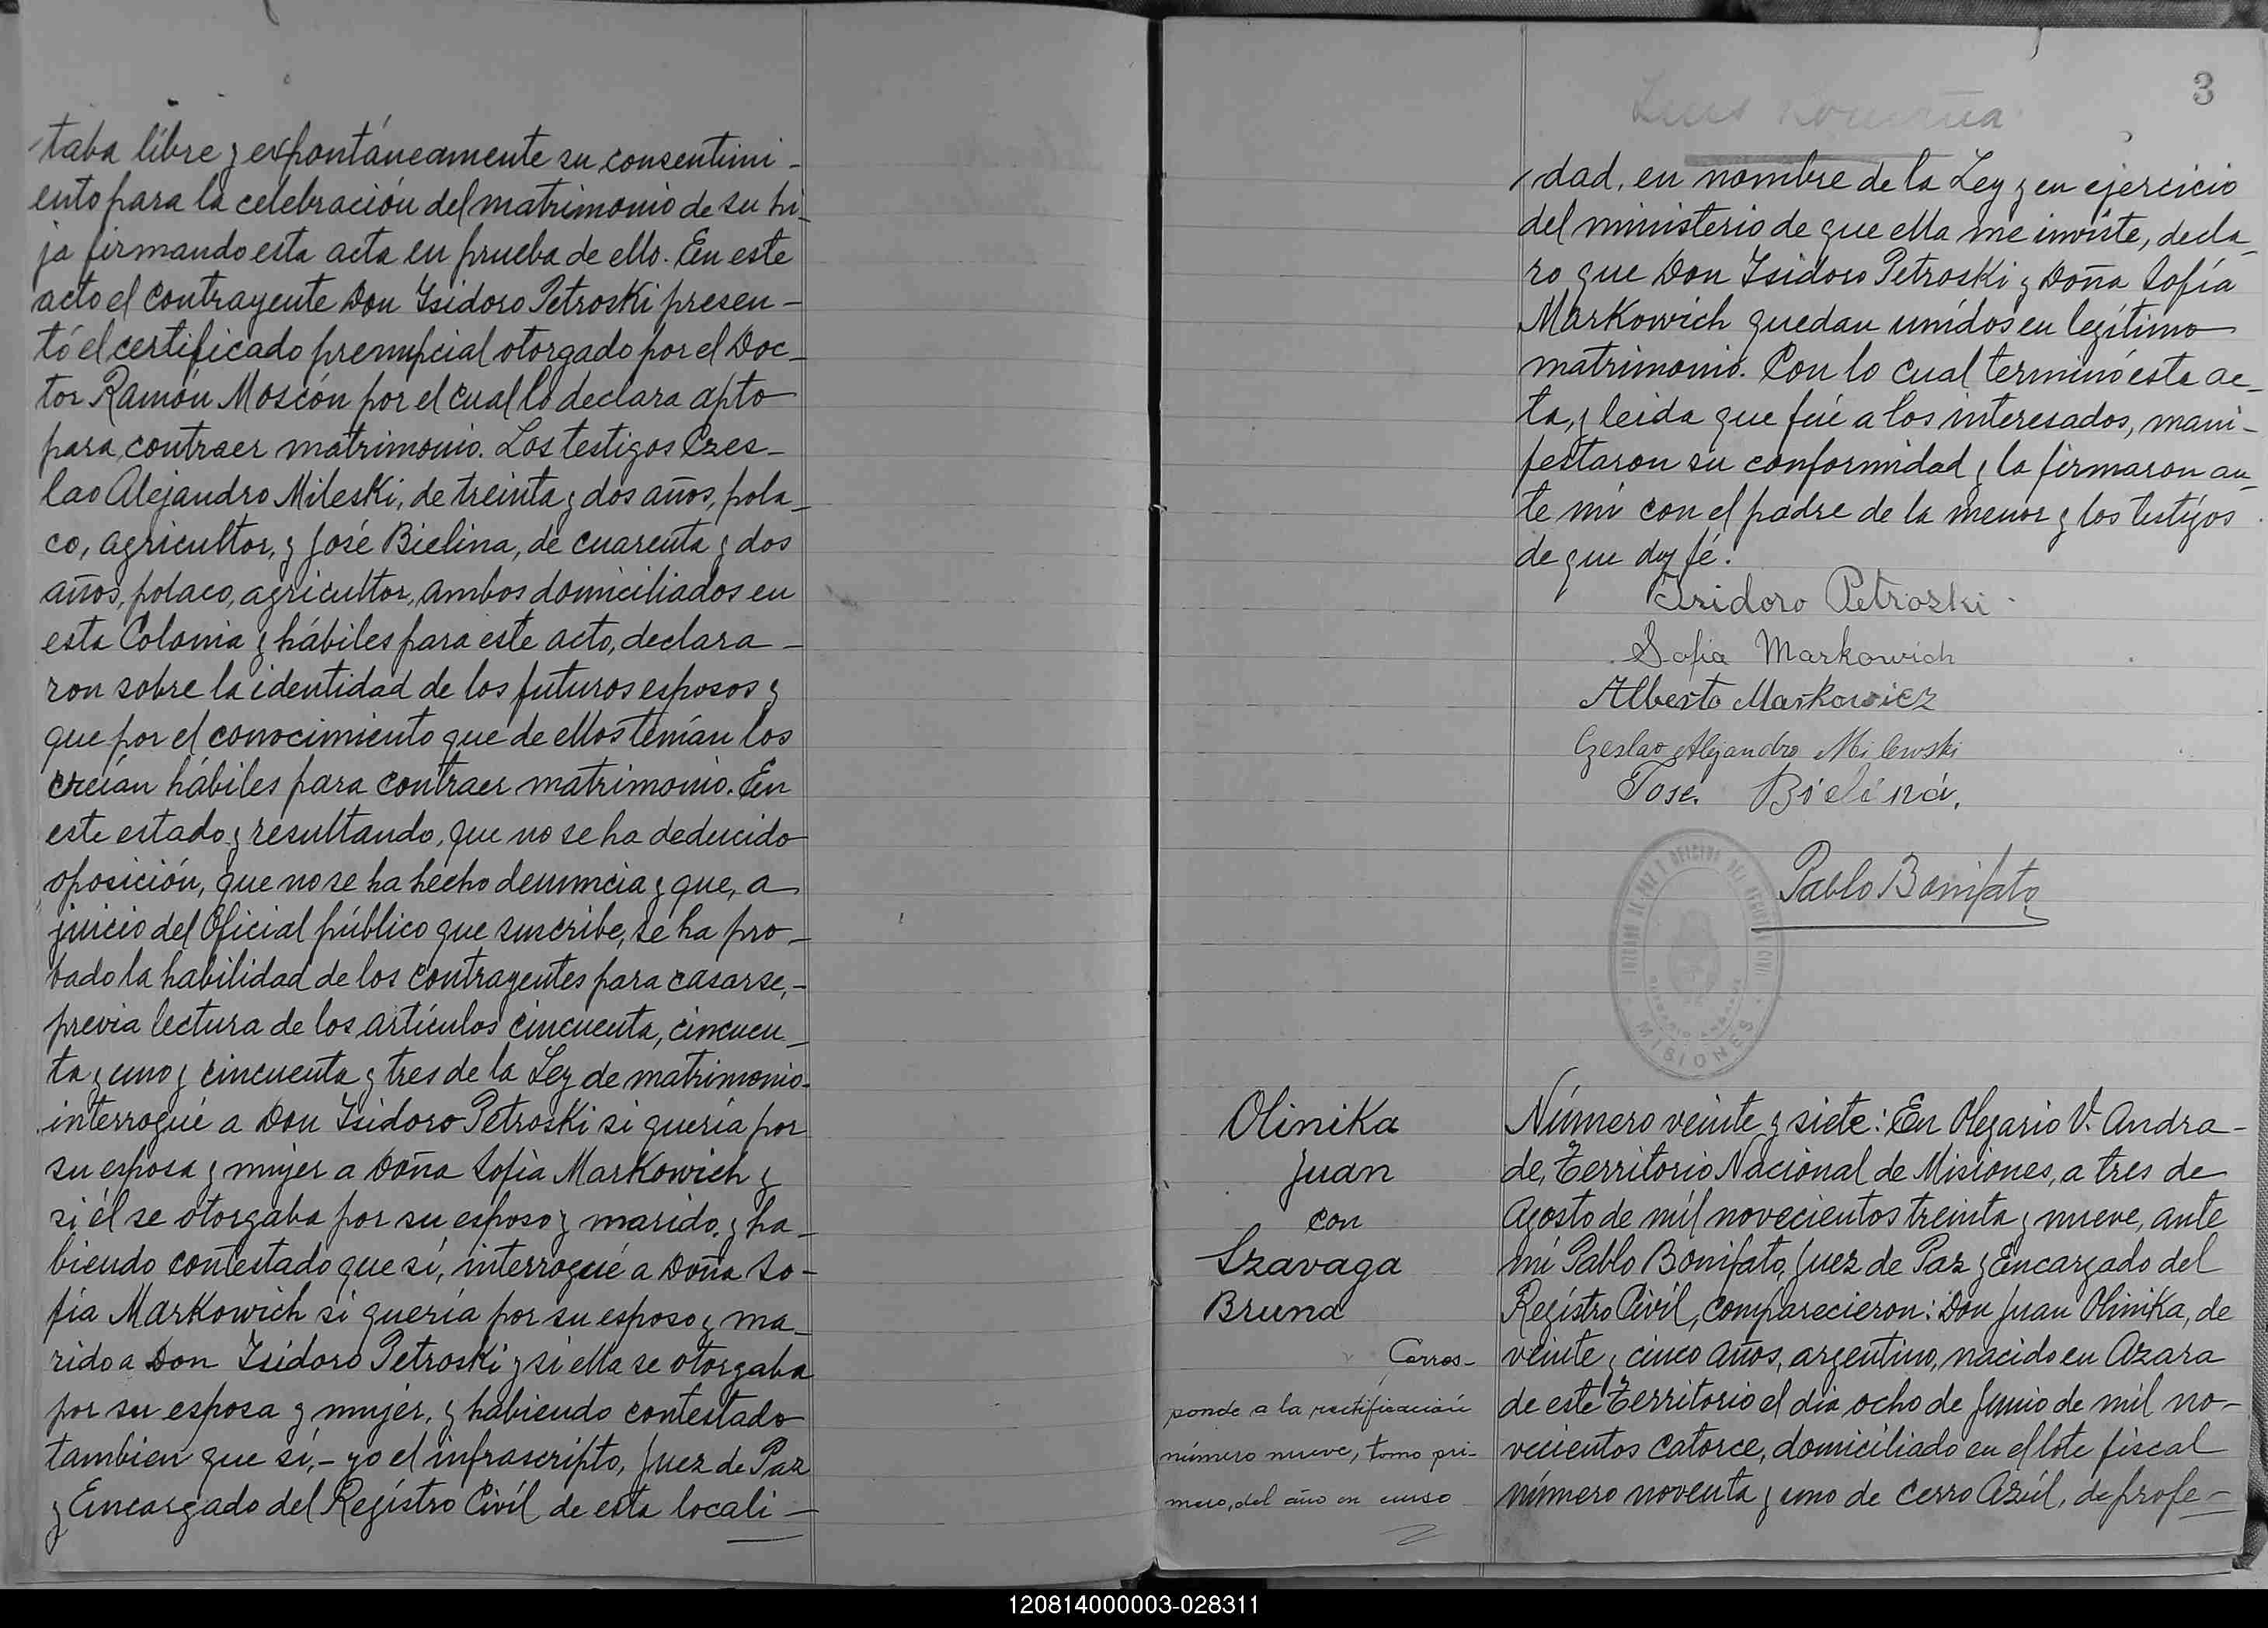 taba libre y expontáneamente su consentimi-
ento para la celebración del matrimonio de su hi-
ja firmando esta acta en prueba de ello. En este
acto el contrayente Don Isidoro Petroski presen-
tó el certificado prenupcial otorgado por el Doc-
tor Ramón Moscón por el cual lo declara apto
para contraer matrimonio. Los testigos Czes-
lao Alejandro Mileski, de treinta y dos años, pola-
co, agricultor, y José Bielina, de cuarenta y dos
años, polaco, agricultor, ambos domiciliados en
esta Colonia y hábiles para este acto, declara-
ron sobre la identidad de los futuros esposos y
que por el conocimiento que de ellos tenían los
creían hábiles para contraer matrimonio. En
este estado y resultando, que no se ha deducido
oposición, que no se ha hecho denuncia y que, a
juicio del Oficial público que suscribe, se ha pro-
bado la habilidad de los contrayentes para casarse,-
previa lectura de los artículos cincuenta, cincuen-
ta y uno y cincuenta y tres de la Ley de matrimonio-
interrogué a Don Isidoro Petroski si quería por
su esposa y mujer a Doña Sofía Markowich y
si él se otorgaba por su esposo y marido, y ha-
biendo contestado que sí, interrogué a Doña So-
fía Markowich si quería por su esposo y ma-
rido a Don Isidoro Petroski y si ella se otorgaba
por su esposa y mujer, y habiendo contestado
tambien que sí,- yo el infrascripto, Juez de Paz
y Encargado del Regístro Civíl de esta locali-
3
dad, en nombre de la Ley y en ejercicio
del ministerio de que ella me inviste, decla-
ro que Don Isidoro Petroski y Doña Sofía
Markowich quedan unidos en legítimo
matrimonio. Con lo cual terminó esta ac-
ta, y leida que fué a los interesados, mani-
festaron su conformidad y la firmaron an-
te mí con el padre de la menor y los testigos
de que doy fé.
Isidoro Petroski.
Sofia Markowich
Alberto Markowicz
Czeslao Alejandro Milewski
Jose. Bielina.
Pablo Bonifato
MISIONES
Olinika
Juan
con
Szavaga
Bruna
Corres-
ponde a la rectificación
número nueve, tomo pri-
mero, del año en curso
Número veinte y siete: En Olegario V. Andra-
de, Territorio Nacional de Misiones, a tres de
Agosto de mil novecientos treinta y nueve, ante
mí Pablo Bonifato, Juez de Paz y Encargado del
Regístro Civíl, comparecieron: Don Juan Olinika, de
veinte y cinco años, argentino, nacido en Azara
de este Territorio el día ocho de Junio de mil no-
vecientos catorce, domiciliado en el lote fiscal
número noventa y uno de Cerro Azúl, de profe-